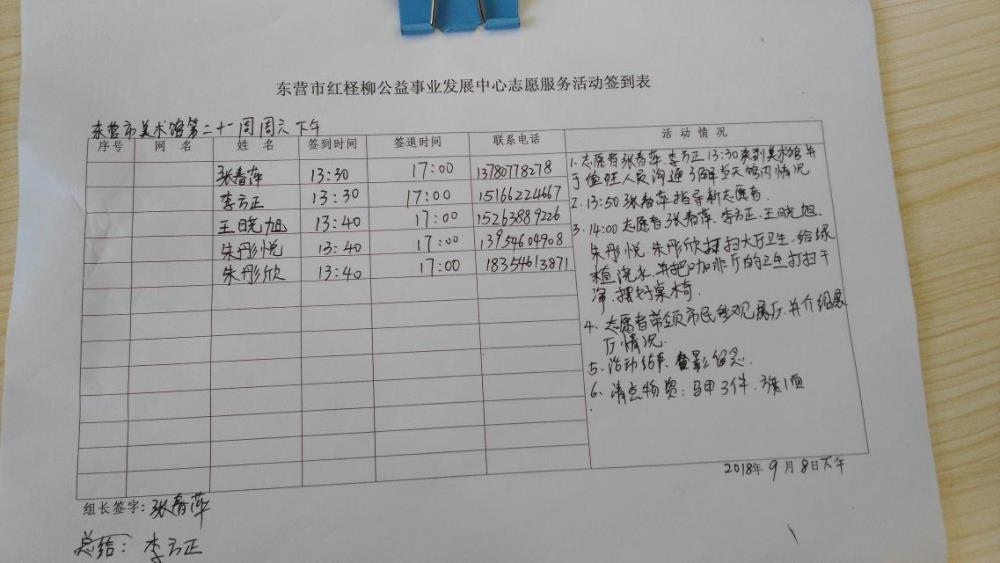 东营市红柽柳公益事业发展中心志愿服务活动签到表
东营市美术馆第二十一周周六下午
序号 网名 姓名 签到时间 签退时间 联系电话 活动情况
张春萍 13:30 17:00 13780778278
李方正 13:30 17:00 15166224667
王晓旭 13:40 17:00 15263889226
朱彤悦 13:40 17:00 13954604908
朱彤欣 13:40 17:00 18354613871
1. 志愿者张春萍、李方正13:30来到美术馆并
于值班人员沟通了解当天馆内情况
2. 13:50张春萍指导新志愿者.
3. 14:00志愿者张春萍、李方正、王晓旭、
朱彤悦、朱彤欣打扫大厅卫生、给绿
植浇水、并把咖啡厅的卫生打扫干
净、摆好桌椅.
4. 志愿者带领市民参观展厅、并介绍展
厅情况.
5. 活动结束、合影留念.
6. 清点物资：马甲3件、旗1面
2018年9月8日下午
组长签字：张春萍
总结：李方正